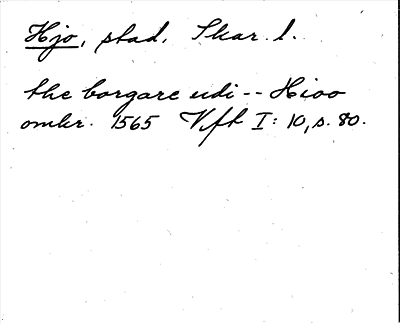 Hjo, stad, Skar. l.
the borgare udi -- Hioo
omkr. 1565 Vft I: 10, s. 80.